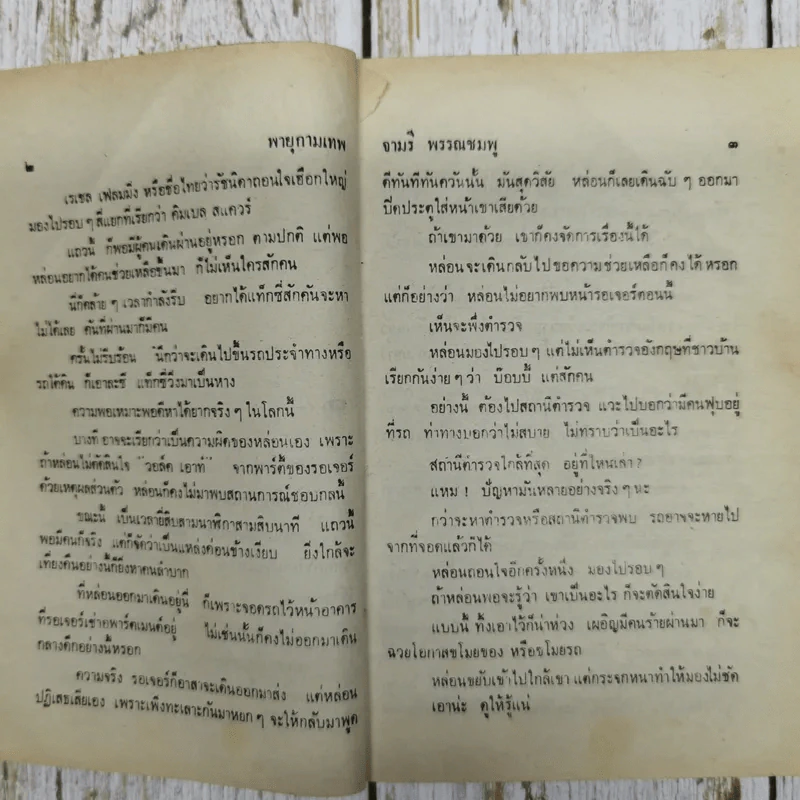 พายุกามเทพ
๒
เรเชล เฟลมมิ่ง หรือชื่อไทยว่ารัชนิดาถอนใจเฮือกใหญ่
มองไปรอบๆ สี่แยกที่เรียกว่า คิมเบล สแควร์
แถวนี้ ก็พอมีผู้คนเดินผ่านอยู่หรอก ตามปกติ แต่พอ
หล่อนอยากได้คนช่วยเหลือขึ้นมา ก็ไม่เห็นใครสักคน
นี่ก็คล้าย ๆ เวลากำลังรีบ อยากได้แท็กซี่สักคันจะหา
ไม่ได้เลย คันที่ผ่านมาก็มีคน
ครั้นไม่รีบร้อน นึกว่าจะเดินไปขึ้นรถประจำทางหรือ
รถใต้ดิน ก็เอาละซี แท็กซี่วิ่งมาเป็นหาง
ความพอเหมาะพอดีหาได้ยากจริง ๆ ในโลกนี้
บางที อาจจะเรียกว่าเป็นความผิดของหล่อนเอง เพราะ
ถ้าหล่อนไม่ตัดสินใจ "วอล์ค เอาท์" จากพาร์ตี้ของรอเจอร์
ด้วยเหตุผลส่วนตัว หล่อนก็คงไม่มาพบสถานการณ์ชอบกลนี้
ขณะนี้ เป็นเวลายี่สิบสามนาฬิกาสามสิบนาที แถวนี้
พอมีคนก็จริง แต่ก็จัดว่าเป็นแหล่งค่อนข้างเงียบ ยิ่งใกล้จะ
เที่ยงคืนอย่างนี้ก็ยิ่งหาคนลำบาก
ที่หล่อนออกมาเดินอยู่นี่ ก็เพราะจอดรถไว้หน้าอาคาร
ที่รอเจอร์เช่าอพาร์ตเมนต์อยู่ ไม่เช่นนั้นก็คงไม่ออกมาเดิน
กลางดึกอย่างนี้หรอก
ความจริง รอเจอร์ก็อาสาจะเดินออกมาส่ง แต่หล่อน
ปฏิเสธเสียเอง เพราะเพิ่งทะเลาะกันมาหยก ๆ จะให้กลับมาพูด
จามรี พรรณชมพู
๓
ดีทันทีทันควันนั้น มันสุดวิสัย หล่อนก็เลยเดินฉับ ๆ ออกมา
ปิดประตูใส่หน้าเขาเสียด้วย
ถ้าเขามาด้วย เขาก็คงจัดการเรื่องนี้ได้
หล่อนจะเดินกลับไปขอความช่วยเหลือก็คงได้หรอก
แต่ก็อย่างว่า หล่อนไม่อยากพบหน้ารอเจอร์ตอนนี้
เห็นจะพึ่งตำรวจ
หล่อนมองไปรอบๆ แต่ไม่เห็นตำรวจอังกฤษที่ชาวบ้าน
เรียกกันง่ายๆ ว่า บ๊อบบี้ แต่สักคน
อย่างนี้ ต้องไปสถานีตำรวจ แวะไปบอกว่ามีคนฟุบอยู่
ที่รถ ท่าทางบอกว่าไม่สบาย ไม่ทราบว่าเป็นอะไร
สถานีตำรวจใกล้ที่สุด อยู่ที่ไหนเล่า?
แหม ! ปัญหามันหลายอย่างจริงๆ นะ
กว่าจะหาตำรวจหรือสถานีตำรวจพบ รถอาจจะหายไป
จากที่จอดแล้วก็ได้
หล่อนถอนใจอีกครั้งหนึ่ง มองไปรอบๆ
ถ้าหล่อนพอจะรู้ว่า เขาเป็นอะไร ก็จะตัดสินใจง่าย
แบบนี้ ทิ้งเอาไว้ก็น่าห่วง เผอิญมีคนร้ายผ่านมา ก็จะ
ฉวยโอกาสขโมยของ หรือขโมยรถ
หล่อนขยับเข้าไปใกล้เขา แต่กระจกหนาทำให้มองไม่ชัด
เอาน่ะ ดูให้รู้แน่